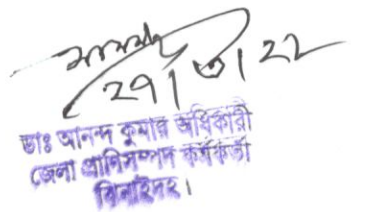 ২৭/৩/২২
ডাঃ আনন্দ কুমার অধিকারী
জেলা প্রাণিসম্পদ কর্মকর্তা
ঝিনাইদহ।